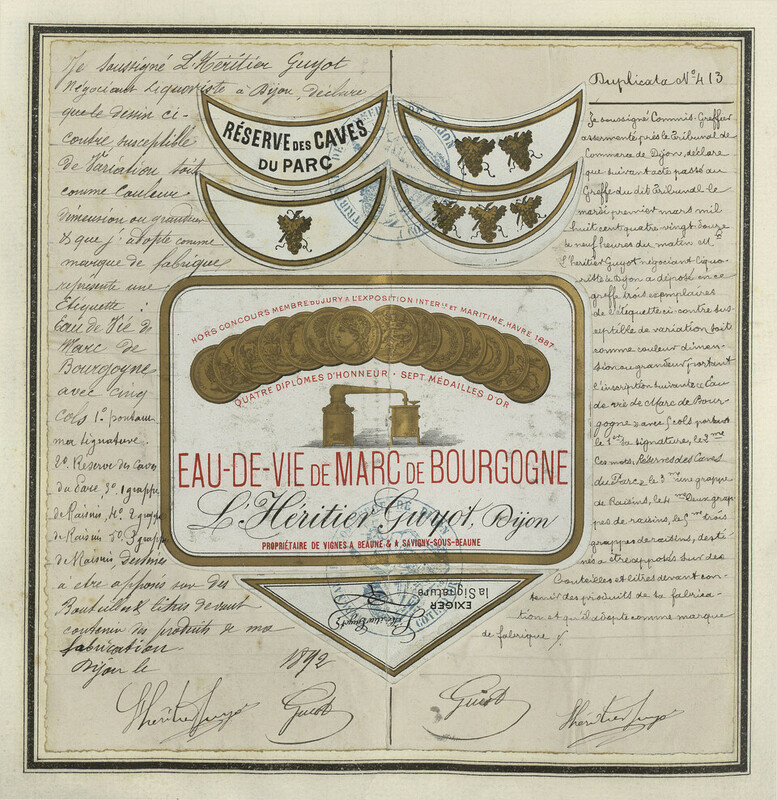 Je soussigné L'Héritier Guyot
Négociant Liquoriste à Dijon, déclare
que le dessin ci-
contre susceptible
de Variation soit
comme Couleur
dimension ou grandeur
& que j'adopte comme
marque de fabrique
représente une
Etiquette :
Eau de Vie de
Marc de
Bourgogne
avec cinq
Cols 1º portant
ma signature
2º Reserve des Caves
du Parc 3º 1 grappe
de Raisin 4º 2 grappes
de Raisin 5º 3 grappes
de Raisin, destinés
à être apposés sur des
Bouteilles & litres devant
contenir des produits de ma
fabrication
Dijon le 1892
L'heritier Guyot
Guiot
RÉSERVE DES CAVES
DU PARC
HORS CONCOURS MEMBRE DU JURY A L'EXPOSITION INTERLE ET MARITIME, HAVRE 1887
QUATRE DIPLÔMES D'HONNEUR · SEPT MÉDAILLES D'OR
EAU-DE-VIE DE MARC DE BOURGOGNE
L'Héritier Guyot, Dijon
PROPRIÉTAIRE DE VIGNES A BEAUNE & A SAVIGNY-SOUS-BEAUNE
EXIGER
la Signature
L'Héritier Guyot
Duplicata Nº 413
Je soussigné Commis-Greffier
assermenté près le Tribunal de
Commerce de Dijon, déclare
que suivant acte passé au
Greffe du dit Tribunal le
mardi premier mars mil
huit cent quatre vingt douze
à neuf heures du matin Mr
L'heritier Guyot négociant liquo-
riste à Dijon a déposé en ce
greffe trois exemplaires
de l'étiquette ci-contre sus-
ceptible de variation soit
comme couleur dimen-
sion ou grandeur portant
l'inscription suivante: Eau
de vie de Marc de Bour-
gogne avec 5 cols portant
le 1er sa signature, le 2me
Ces mots, Réserves des Caves
du Parc, le 3me une grappe
de Raisins, le 4me deux grap-
pes de raisins, le 5me trois
grappes de raisins, desti-
nés a être apposés sur des
Bouteilles et litres devant con-
tenir des produits de sa fabrica-
tion et qu'il adopte comme marque
de fabrique
Guiot
L'heritier Guyot